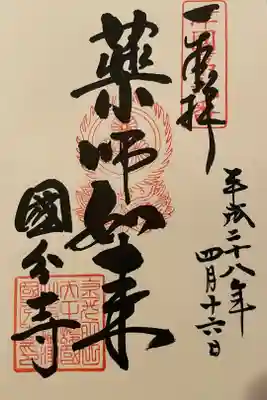 奉拝
平成二十八年
四月十六日
薬師如来
國分寺